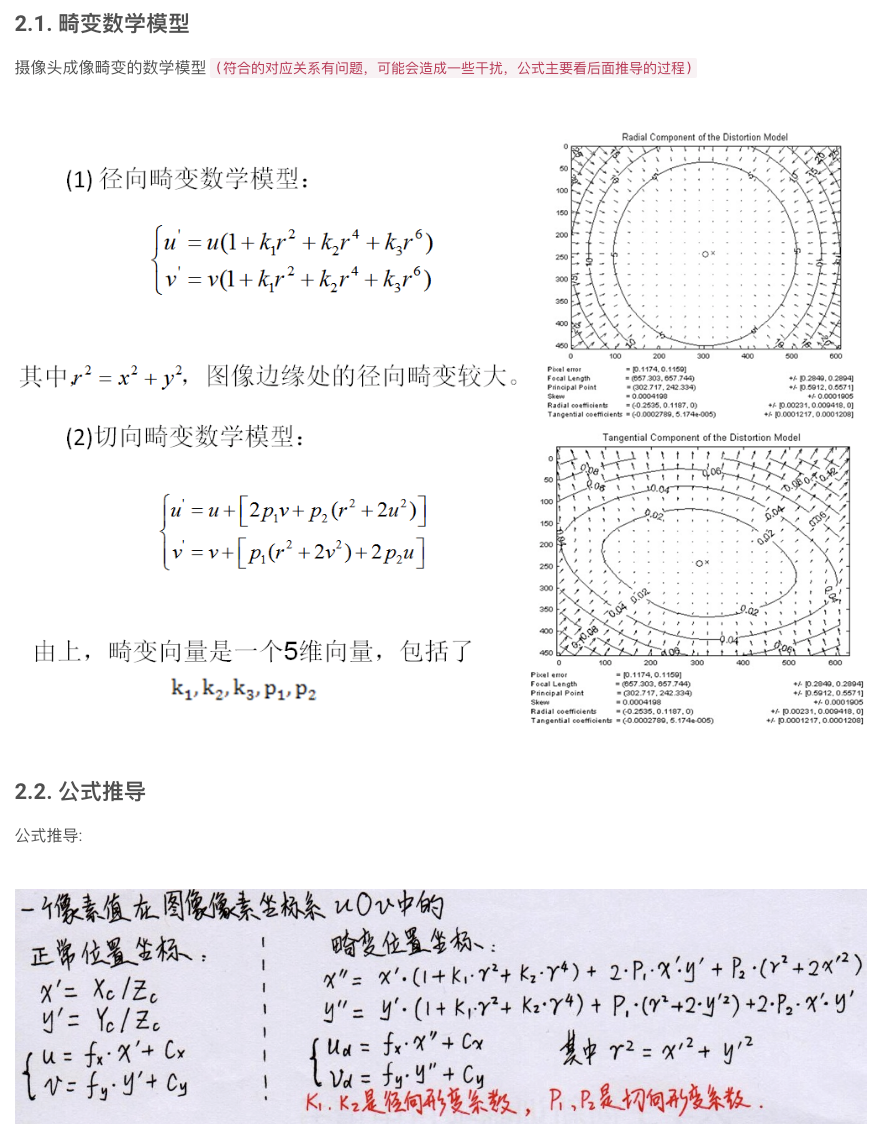 2.1. 畸变数学模型
摄像头成像畸变的数学模型（符合的对应关系有问题，可能会造成一些干扰，公式主要看后面推导的过程）
(1) 径向畸变数学模型：
u' = u(1 + k₁r² + k₂r⁴ + k₃r⁶)
v' = v(1 + k₁r² + k₂r⁴ + k₃r⁶)
其中,r² = x² + y²，图像边缘处的径向畸变较大。
(2)切向畸变数学模型：
u' = u + [2p₁v + p₂(r² + 2u²)]
v' = v + [p₁(r² + 2v²) + 2p₂u]
由上，畸变向量是一个5维向量，包括了
k₁,k₂,k₃,p₁,p₂
Radial Component of the Distortion Model
0
50
100
150
200
250
300
350
400
450
0 100 200 300 400 500 600
Pixel error = [0.1174, 0.1159]
Focal Length = (657.303, 657.744) +/- [0.2849, 0.2894]
Principal Point = (302.717, 242.334) +/- [0.5912, 0.5571]
Skew = 0.0004198 +/- 0.0001905
Radial coefficients = (-0.2535, 0.1187, 0) +/- [0.00231, 0.009418, 0]
Tangential coefficients = (-0.0002789, 5.174e-005) +/- [0.0001217, 0.0001208]
Tangential Component of the Distortion Model
0
50
100
150
200
250
300
350
400
450
0 100 200 300 400 500 600
Pixel error = [0.1174, 0.1159]
Focal Length = (657.303, 657.744) +/- [0.2849, 0.2894]
Principal Point = (302.717, 242.334) +/- [0.5912, 0.5571]
Skew = 0.0004198 +/- 0.0001905
Radial coefficients = (-0.2535, 0.1187, 0) +/- [0.00231, 0.009418, 0]
Tangential coefficients = (-0.0002789, 5.174e-005) +/- [0.0001217, 0.0001208]
2.2. 公式推导
公式推导:
一个像素值在图像像素坐标系 uOv中的
正常位置坐标：
x' = Xc/Zc
y' = Yc/Zc
u = fx·x' + Cx
v = fy·y' + Cy
畸变位置坐标：
x'' = x'·(1+K₁·r²+K₂·r⁴) + 2·P₁·x'·y' + P₂·(r²+2x'²)
y'' = y'·(1+K₁·r²+K₂·r⁴) + P₁·(r²+2·y'²)+2·P₂·x'·y'
ud = fx·x'' + Cx
vd = fy·y'' + Cy
其中 r² = x'² + y'²
K₁、K₂是径向形变系数，P₁、P₂是切向形变系数.